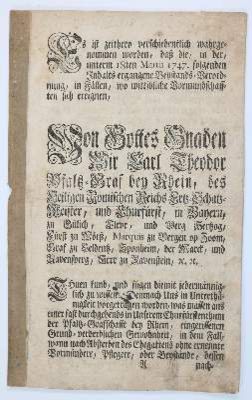 Es ist zeithero verschiedentlich wahrge-
nommen worden, daß die, in der,
unterm 18ten Martii 1747. folgenden
Inhalts ergangene Beystands-Verord-
nung, in Fällen, wo wittibliche Vormundschaf-
ten sich ereignen,
Von Gottes Gnaden
Wir Carl Theodor
Pfaltz-Graf bey Rhein, des
Heiligen Römischen Reichs Ertz-Schatz-
Meister, und Churfürst, in Bayern,
zu Gülich, Cleve, und Berg Hertzog,
Fürst zu Mörß, Marquis zu Bergen op Zoom,
Graf zu Veldentz, Sponheim, der Marck, und
Ravensberg, Herr zu Ravenstein, ꝛc. ꝛc.
Thuen kund, und fügen hiemit jedermännig-
lich zu wissen: Demnach Uns in Unterthä-
nigkeit vorgetragen worden, was massen aus
einer fast durchgehends in Unserem Churfürstenthum
der Pfaltz-Grafschafft bey Rhein, eingerissenen
Grund-verderblichen Gewohnheit, in dem Fall,
wann nach Absterben des Ehegattens ohne ernennte
Vormündere, Pflegere, oder Beyständе, dessen
A nach-